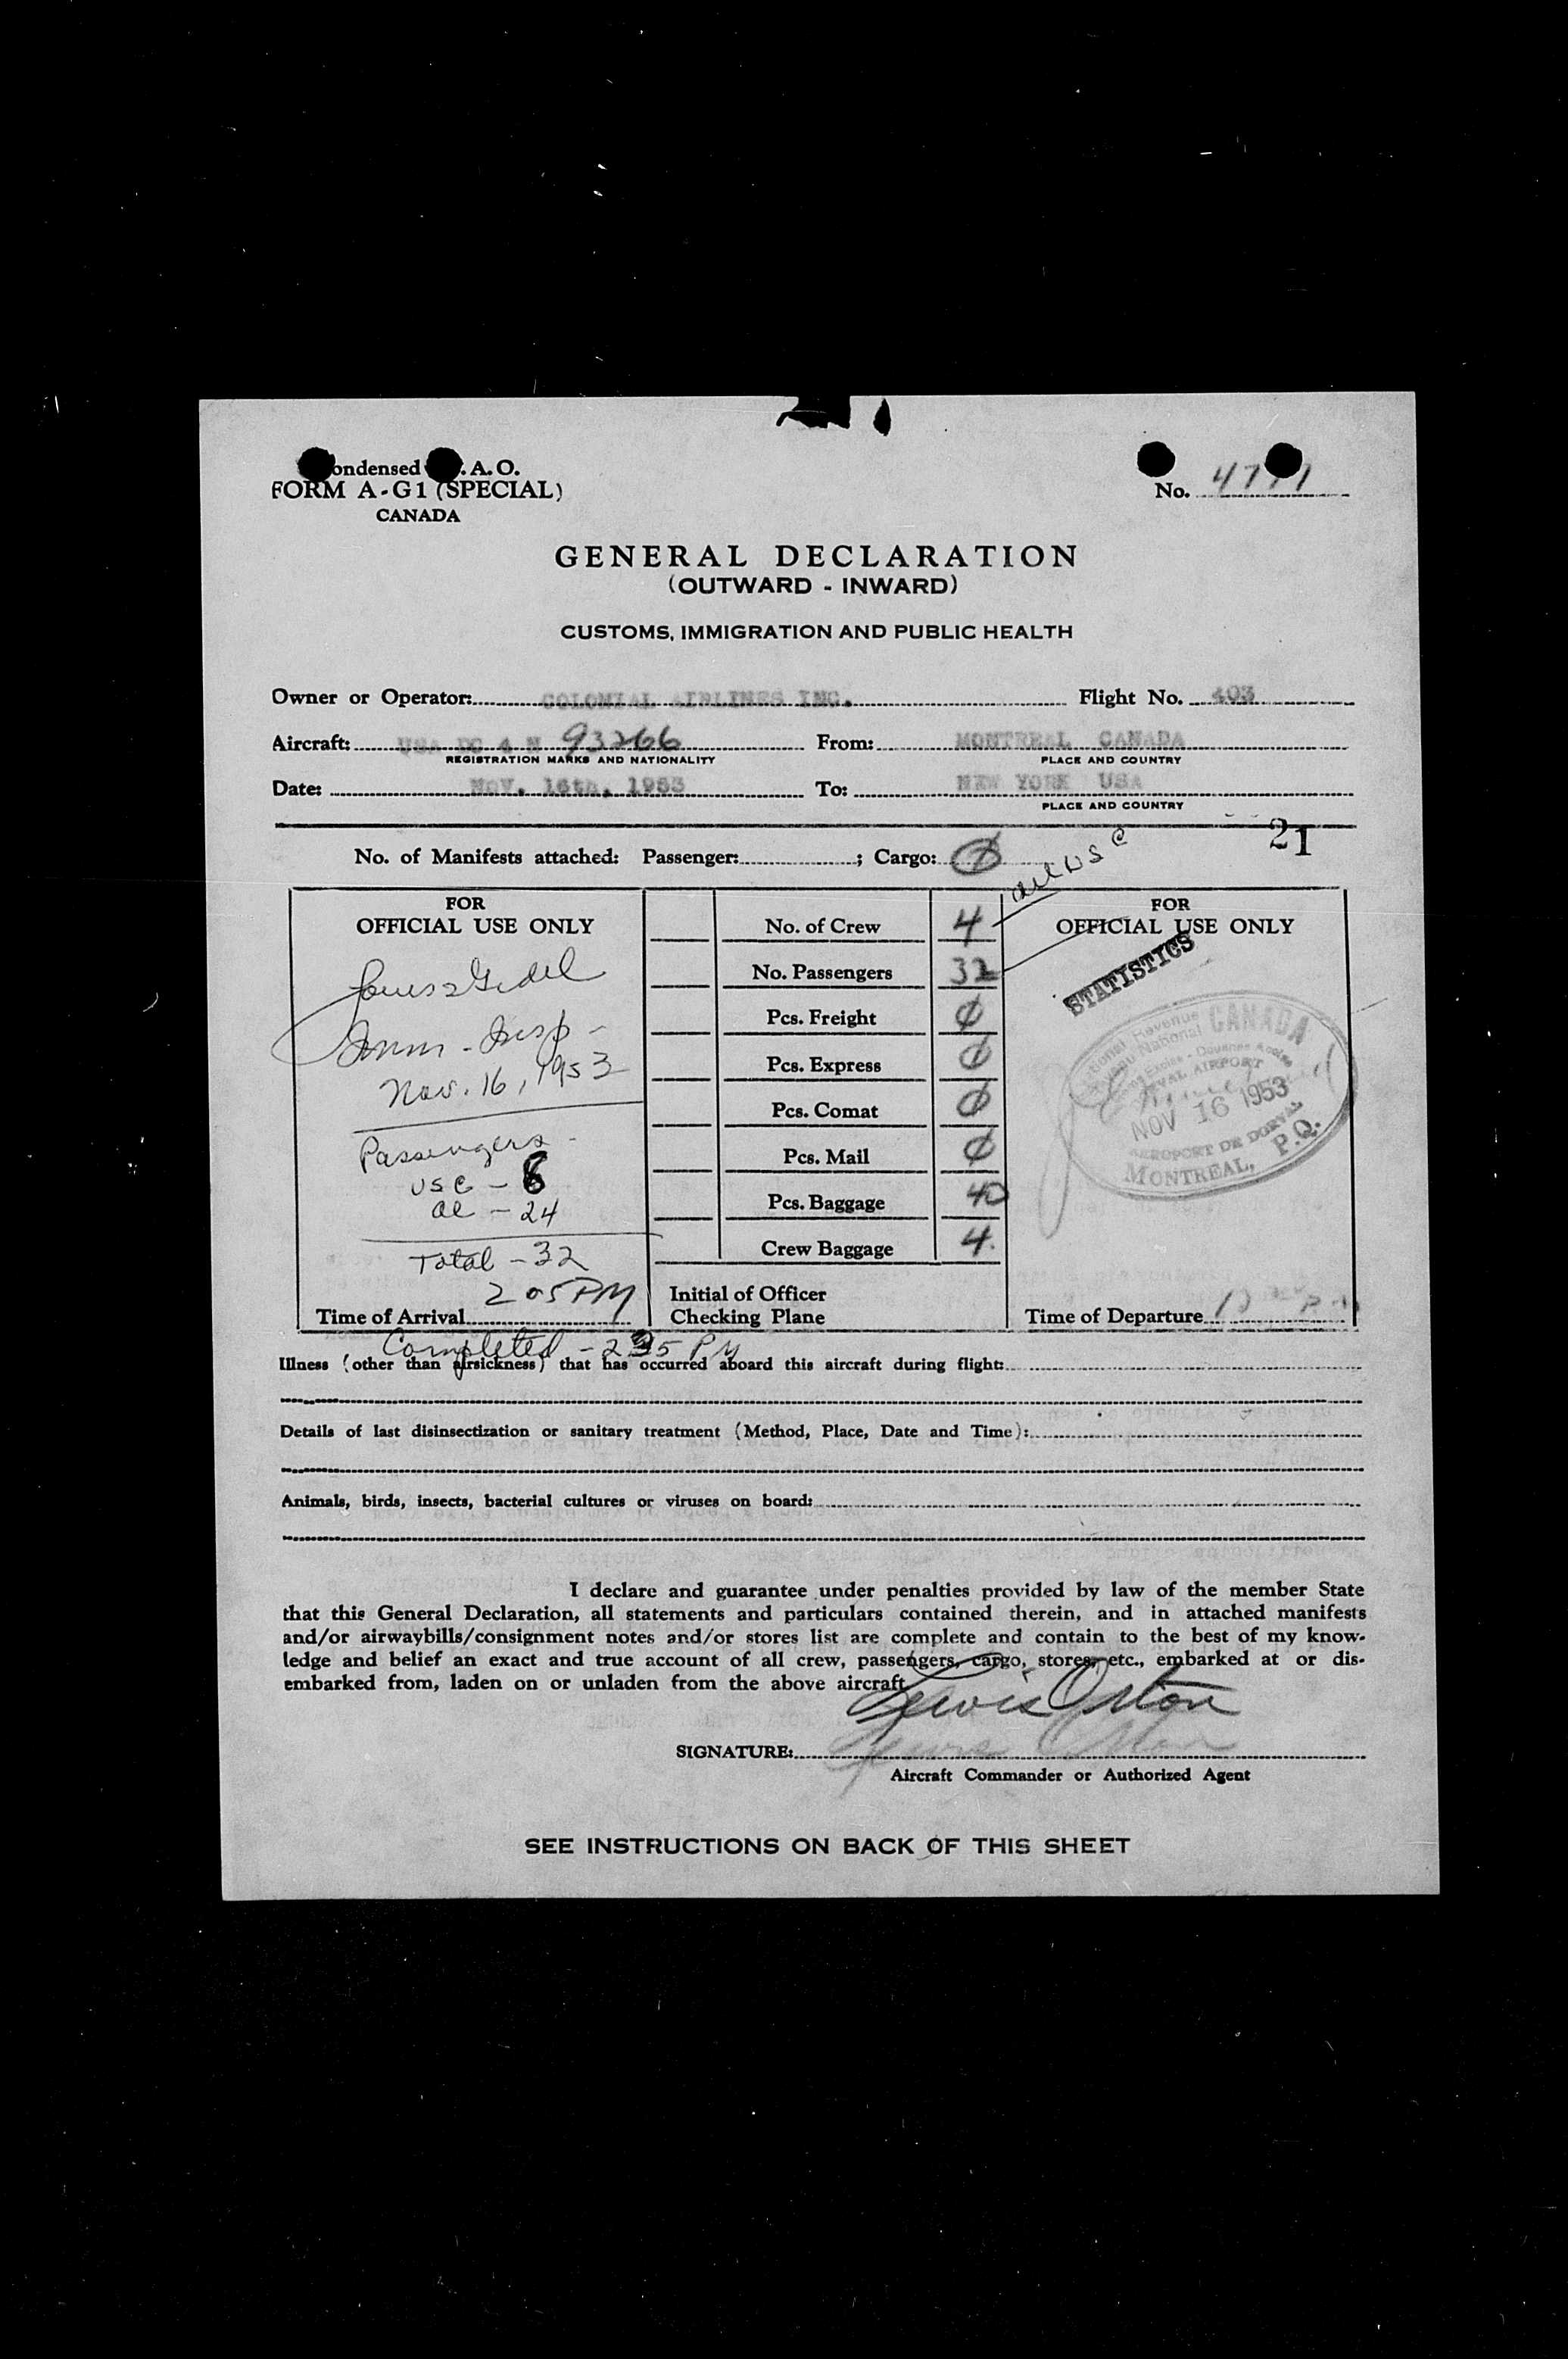 ondensed .A.O.
FORM A-G1 (SPECIAL)
CANADA
No.
GENERAL DECLARATION
(OUTWARD - INWARD)
CUSTOMS, IMMIGRATION AND PUBLIC HEALTH
Owner or Operator: COLONIAL AIRLINES INC. Flight No. 403
Aircraft: USA DC 4 N 93266 From: MONTREAL CANADA
REGISTRATION MARKS AND NATIONALITY PLACE AND COUNTRY
Date: NOV. 16th, 1953 To: NEW YORK USA
PLACE AND COUNTRY
21
No. of Manifests attached: Passenger: ; Cargo: Ø
all USC
FOR
OFFICIAL USE ONLY
Imm - Insp -
Nov. 16, 1953
Passengers -
USC - 8
al - 24
Total - 32
2 05 PM
Time of Arrival
No. of Crew 4
No. Passengers 32
Pcs. Freight Ø
Pcs. Express Ø
Pcs. Comat Ø
Pcs. Mail Ø
Pcs. Baggage 40
Crew Baggage 4
Initial of Officer
Checking Plane
FOR
OFFICIAL USE ONLY
STATISTICS
CANADA
NOV 16 1953
AEROPORT DE DORVAL
MONTREAL, P.Q.
Time of Departure
Completed - 2 PM
Illness (other than airsickness) that has occurred aboard this aircraft during flight:
Details of last disinsectization or sanitary treatment (Method, Place, Date and Time):
Animals, birds, insects, bacterial cultures or viruses on board:
I declare and guarantee under penalties provided by law of the member State
that this General Declaration, all statements and particulars contained therein, and in attached manifests
and/or airwaybills/consignment notes and/or stores list are complete and contain to the best of my know-
ledge and belief an exact and true account of all crew, passengers, cargo, stores, etc., embarked at or dis-
embarked from, laden on or unladen from the above aircraft
Lewis Orton
SIGNATURE:
Aircraft Commander or Authorized Agent
SEE INSTRUCTIONS ON BACK OF THIS SHEET